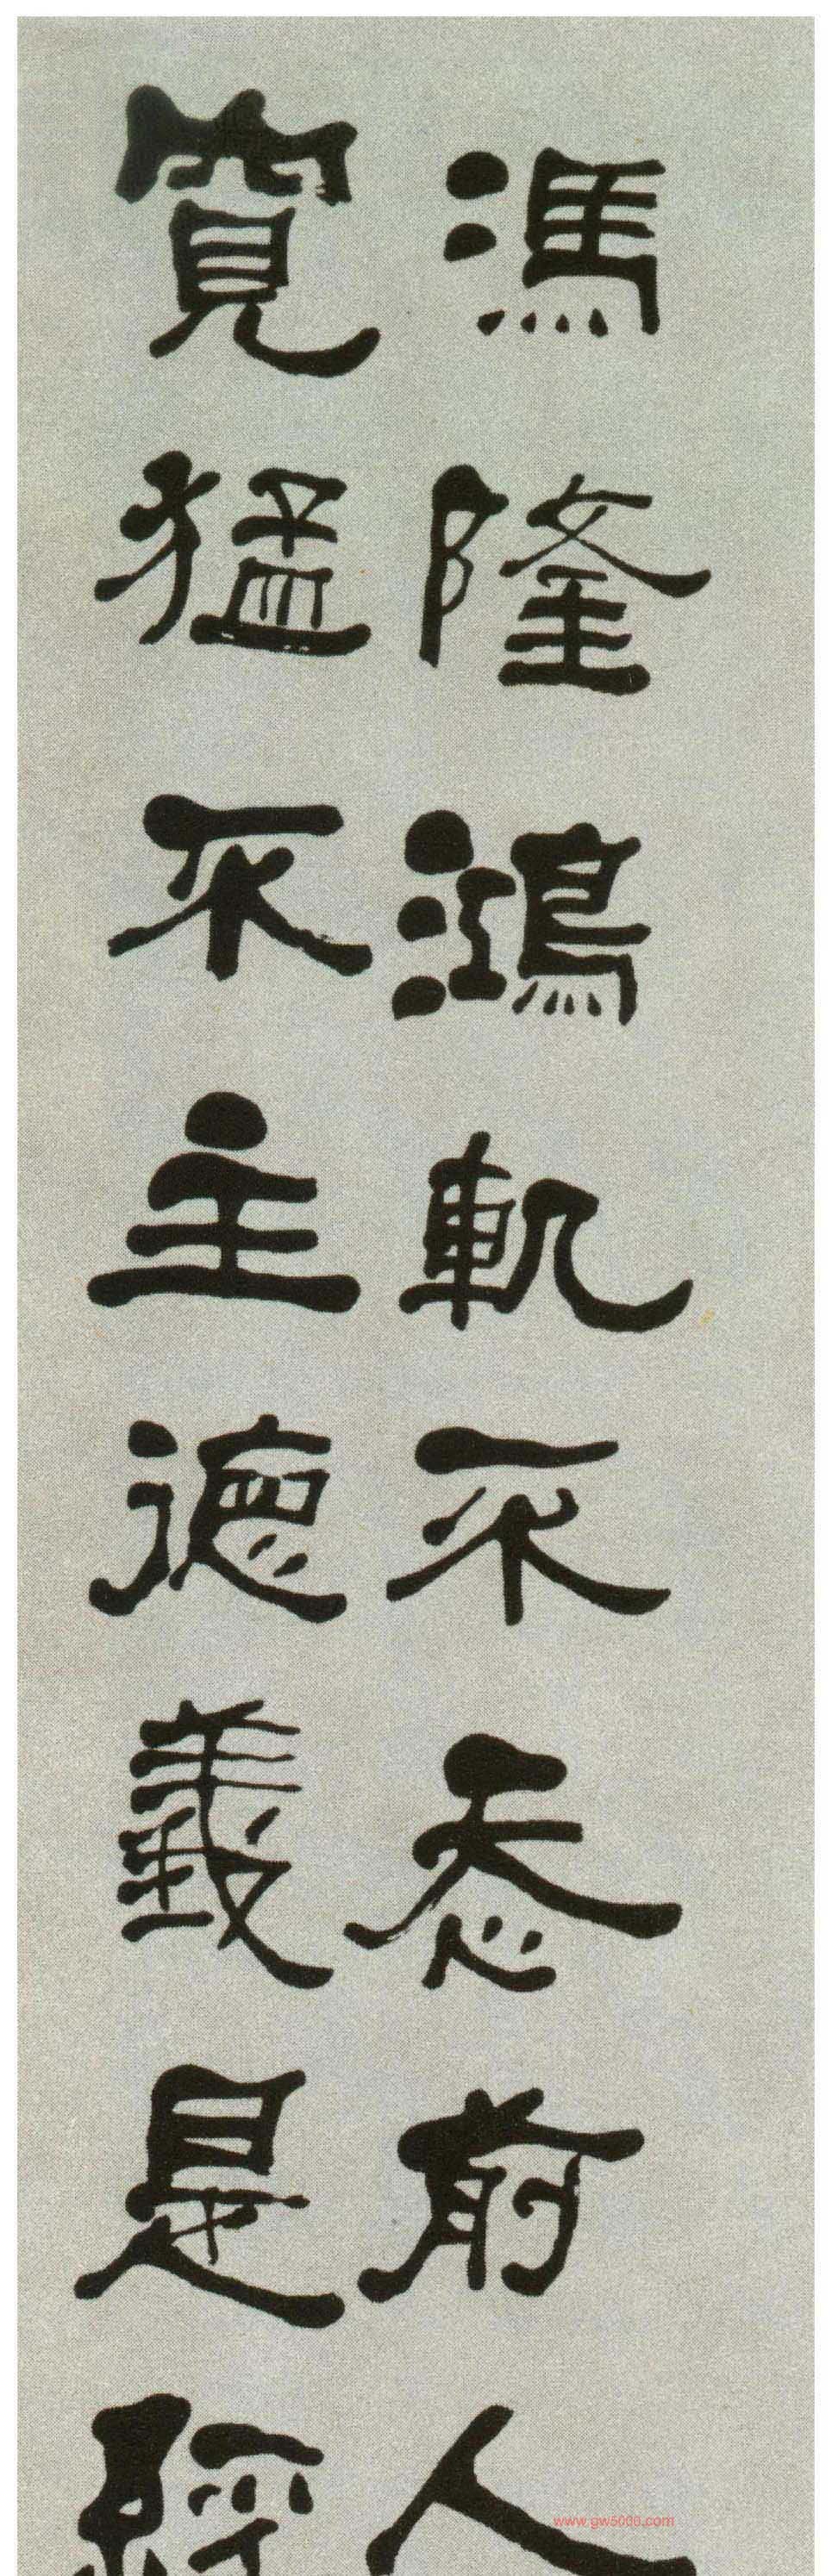 馮隆鴻軌不忝前人
寬猛不主德義是經
www.gw5000.com